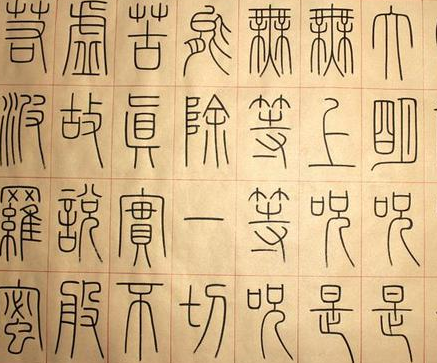 大明呪是
無上呪是
無等等呪
能除一切
苦眞實不
虛故說般
若波羅蜜